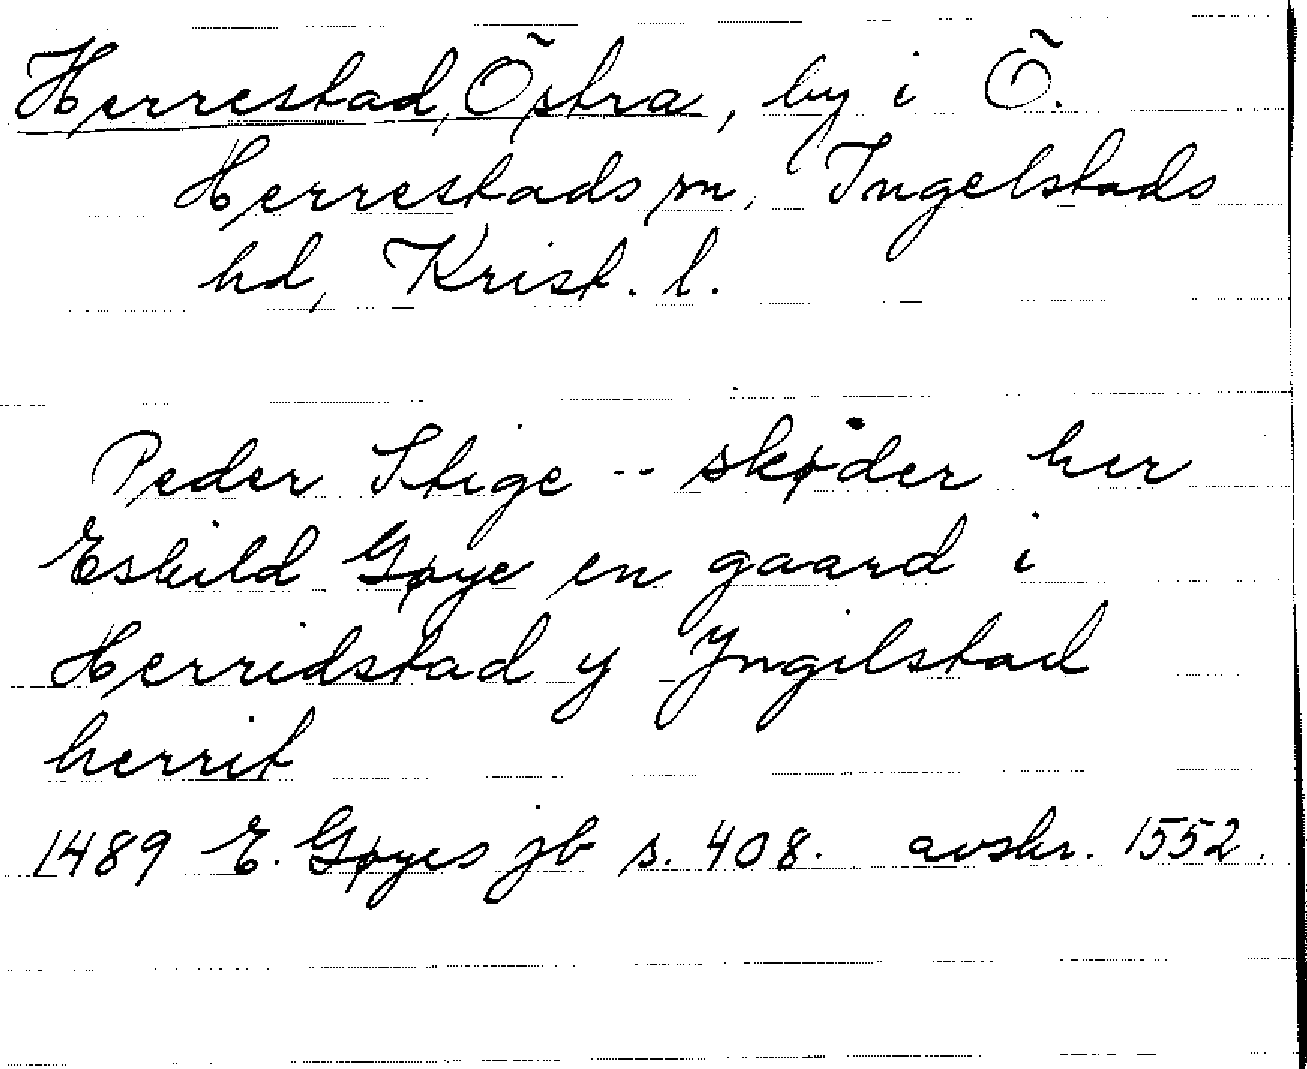 Herrestad, Östra, by i Ö.
Herrestads sn, Ingelstads
hd, Krist. l.
Peder Stige -- skøder her
Eskild Gøye en gaard i
Herridstad y Yngilstad
herrit
1489 E. Gøyes jb s. 408. avskr. 1552.